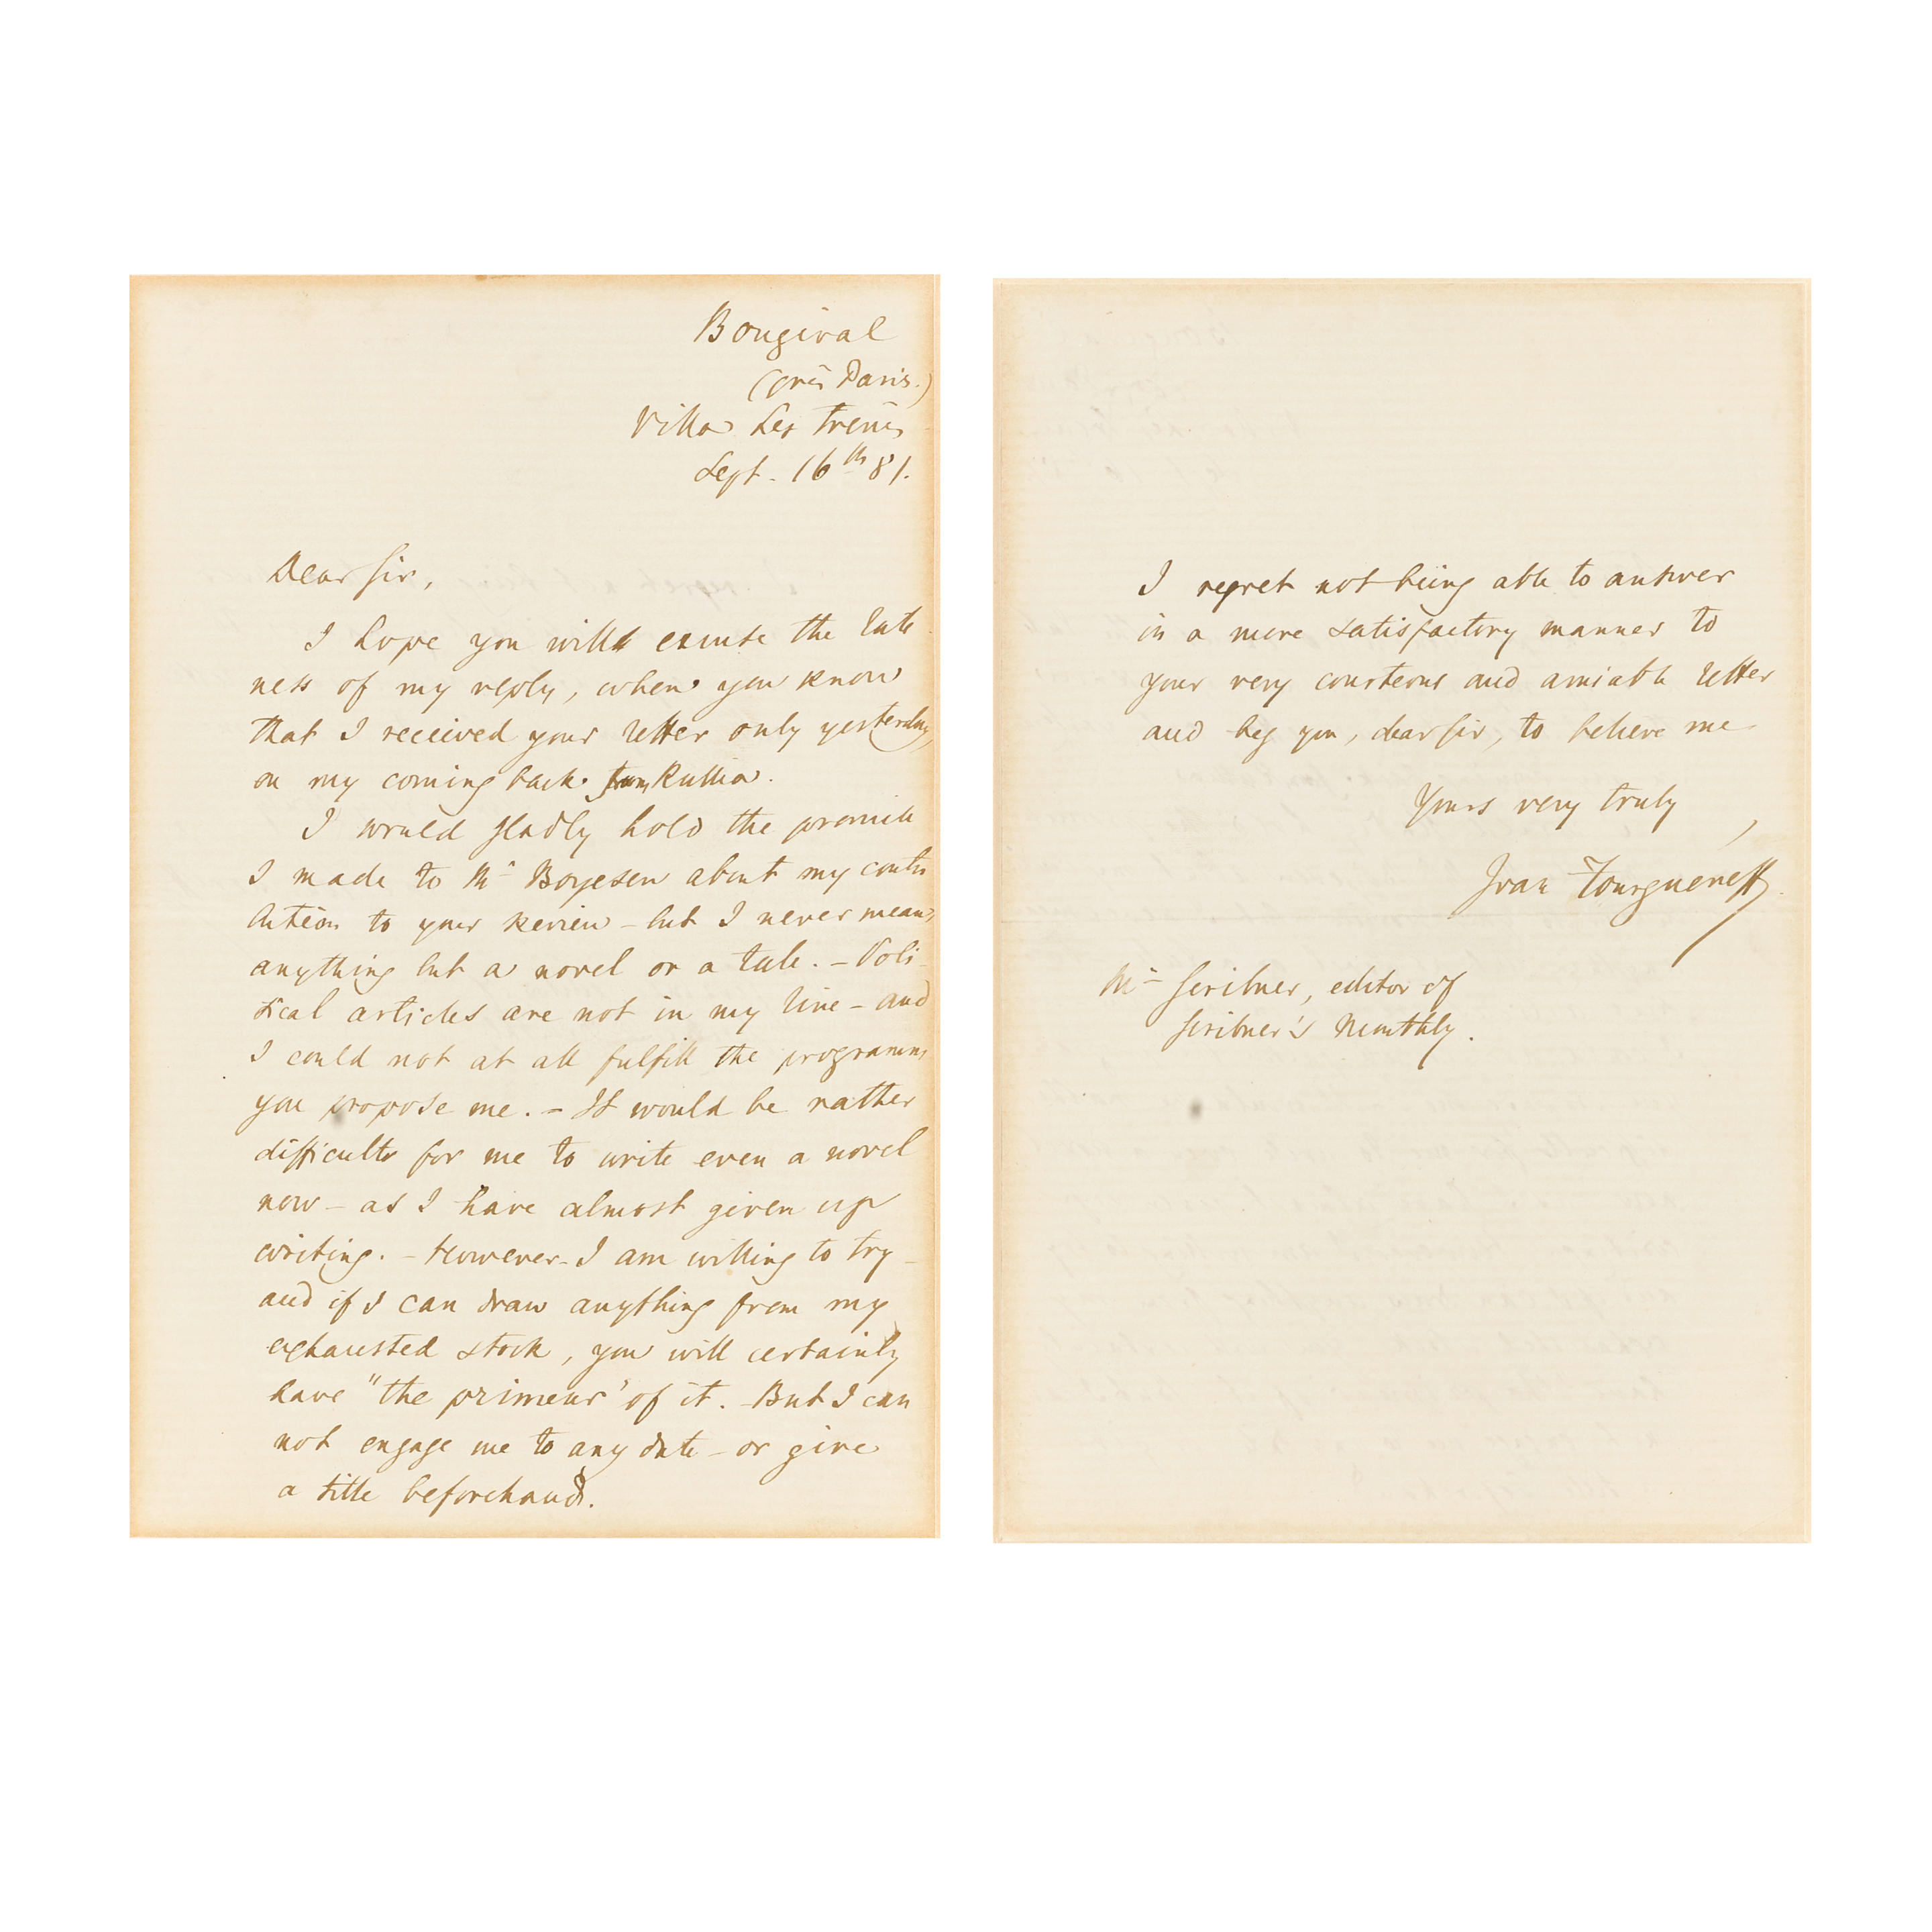 Bougival
(près Paris.)
Villa Les frênes
Sept. 16th 81.
Dear Sir,
I hope you will excuse the late
ness of my reply, when you know
that I received your letter only yesterday,
on my coming back from Russia.
I would gladly hold the promise
I made to Mr Boyesen about my contri
bution to your Review – but I never mean
anything but a novel or a tale. – Poli-
tical articles are not in my line – and
I could not at all fulfill the programm
you propose me. – It would be rather
difficult for me to write even a novel
now – as I have almost given up
writing. – However I am willing to try –
and if I can draw anything from my
exhausted stock, you will certainly
have "the primeur" of it. But I can
not engage me to any date – or give
a title beforehand.
I regret not being able to answer
in a more satisfactory manner to
your very courteous and amiable letter
and beg you, dear Sir, to believe me
Yours very truly,
Ivan Tourguéneff.
Mr Scribner, editor of
Scribner's Monthly.